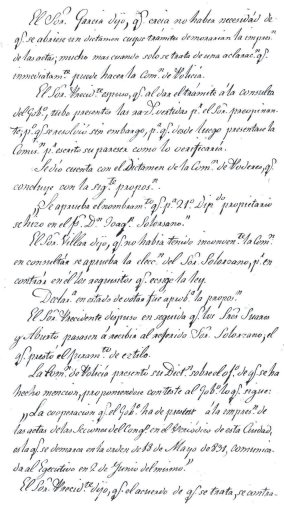 El Sor. Garcia dijo, q.e creia no haber necesidad de
q.e se abriese un dictamen cuyo trámite demoraria la impres.n
de las actas; mucho mas cuando solo se trata de una aclarac.n q.e
inmediatam.te puede hacer la Com.n de Policia.
El Sor. Presid.te espuso, q.e al dar el trámite á la consulta
del Gob.o, tubo presentes las
p.r el Sor. preopinan-
te, p.o q.e se resolvió sin embargo, p.a q.e desde luego presentase la
Comis.n p.r escrito su parecer como lo verificaría.
Se dió cuenta con el Dictamen de la Com.n de Poderes, q.e
concluye con la sig.te propos.n
"Se aprueba el nombram.to q.e p.a 21.o Dip.do propietario
se hizo en el S. D.n Joaq.n Solorzano."
El Sor. Villar dijo, q.e no había tenido inconven.te la Com.n
en consultar se aprueba la elecc.n del Sor. Solorzano, p.r en-
contrar en el los requisitos q.e ecsige la ley.
Declar.a en estado de votar fue aprob.a la propos.n
El Sor. Presidente dispuso en seguida q.e los Sres. Suarez
y Abierto pasasen á recibir al referido Sor. Solorzano, el
q.e prestó el juram.to de estilo.
La Com.n de Policia presentó su Dict.n sobre el of.o de q.e se ha
hecho mencion, proponiendose conteste al Gob.o lo q.e sigue:
"La cooperacion q.e el Gob.o ha de prestar á la impres.n de
las actas de las Secciones del Cong.o en el Periodico de esta Ciudad,
es la q.e se demarca en la orden de 18 de Mayo de 831, comunica-
da al Ejecutivo en 2 de Junio del mismo."
El Sor. Presid.te dijo, q.e el acuerdo de q.e se trata, se contra-